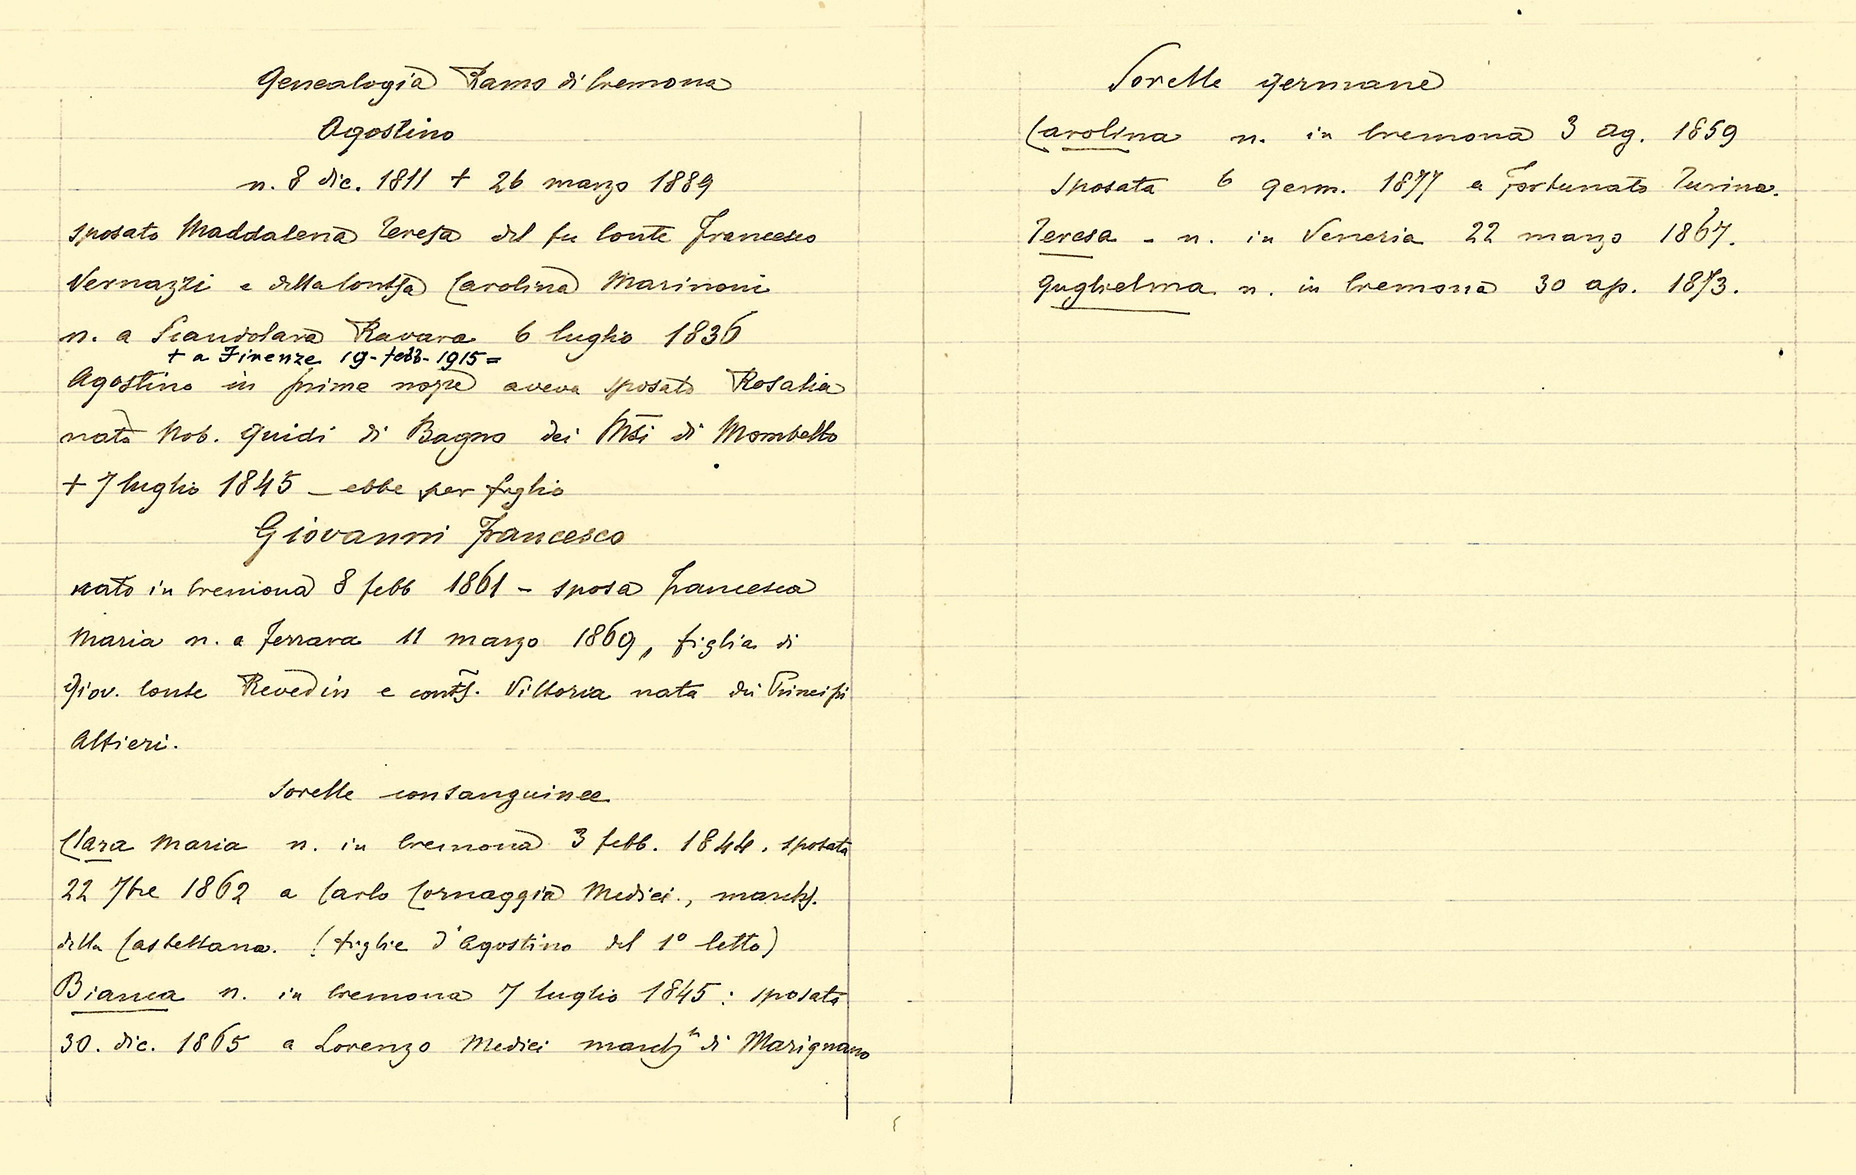 Genealogia Ramo di Cremona
Agostino
n. 8 dic. 1811 + 26 marzo 1889
sposato Maddalena Teresa del fu Conte Francesco
Vernazzi e della Contssa Carolina Marinoni
n. a Scandolara Ravara 6 luglio 1836
+ a Firenze 19-febb-1915=
Agostino in prime nozze aveva sposato Rosalia
nata Nob. Guidi di Bagno dei Msi di Mombello
+ 7 luglio 1845 – ebbe per figlio
Giovanni Francesco
nato in Cremona 8 febb 1861 – sposa Francesca
Maria n. a Ferrara 11 marzo 1869, figlia di
Giov. Conte Revedin e conts. Vittoria nata dei Principi
Altieri.
Sorelle consanguinee
Clara Maria n. in Cremona 3 febb. 1844. sposata
22 7bre 1862 a Carlo Cornaggia Medici., march.
della Castellana. (figlie d'Agostino del 1° letto)
Bianca n. in Cremona 7 luglio 1845: sposata
30. dic. 1865 a Lorenzo Medici march di Marignano
Sorelle germane
Carolina n. in Cremona 3 ag. 1859
sposata 6 genn. 1877 a Fortunato Turina.
Teresa – n. in Venezia 22 marzo 1867.
Guglielma n. in Cremona 30 ap. 1873.